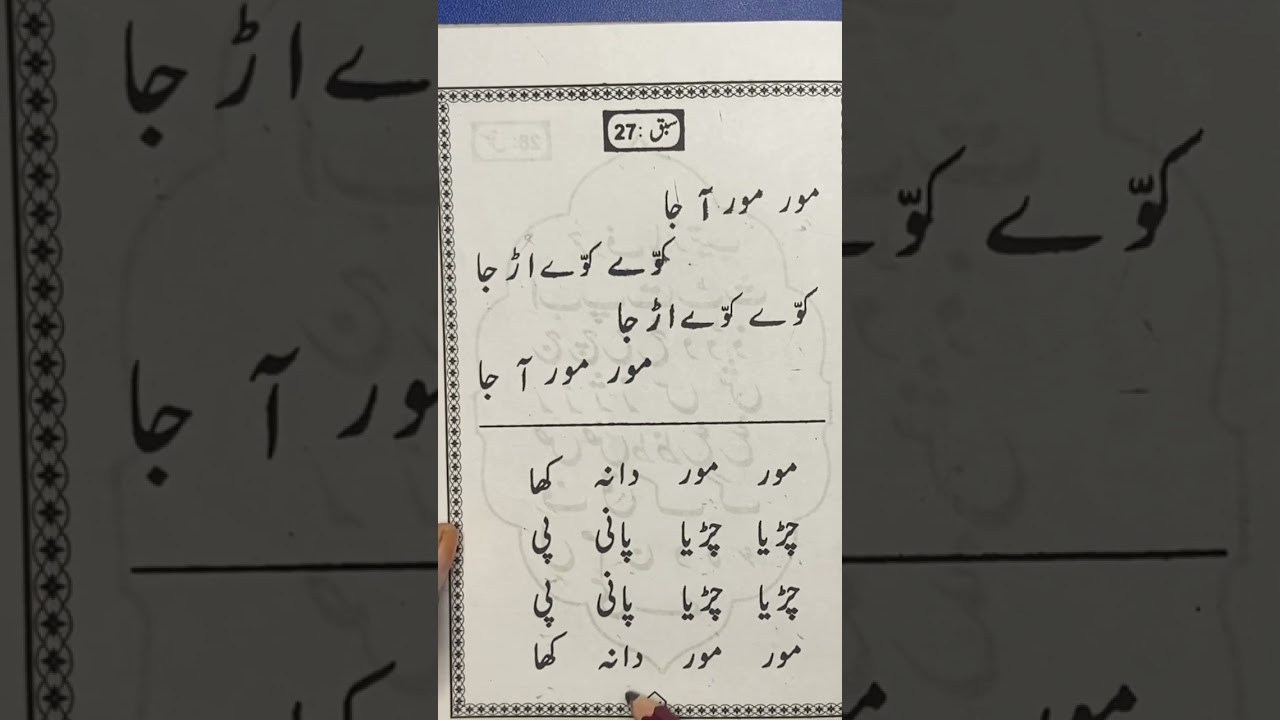 سبق :27
مور مور آ جا
کوّے کوّے اڑ جا
کوّے کوّے اڑ جا
مور مور آ جا
مور مور دانہ کھا
چڑیا چڑیا پانی پی
چڑیا چڑیا پانی پی
مور مور دانہ کھا